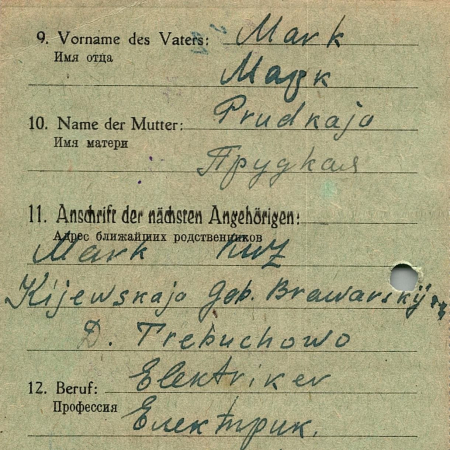 9. Vorname des Vaters: Mark
Имя отца
Марк
10. Name der Mutter: Prudkaja
Имя матери
Прудкая
11. Anschrift der nächsten Angehörigen:
Адрес ближайших родственников
Mark
Kijewskaja Geb. Brawarskij
D. Trebuchowo
12. Beruf: Elektriker
Профессия
Електрик.